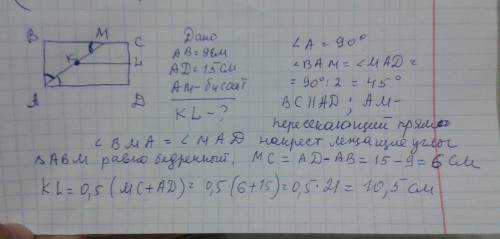 B M C
K L
A D
Дано
AB=9см
AD=15см
AM-бисект
KL-?
∠A=90°
∠BAM=∠MAD=
=90°:2=45°
BC||AD; AM-
пересекающий прямые
∠BMA=∠MAD накрест лежащие углы
ΔABM равнобедренный. MC=AD-AB=15-9=6см
KL=0,5(MC+AD)=0,5(6+15)=0,5·21=10,5см